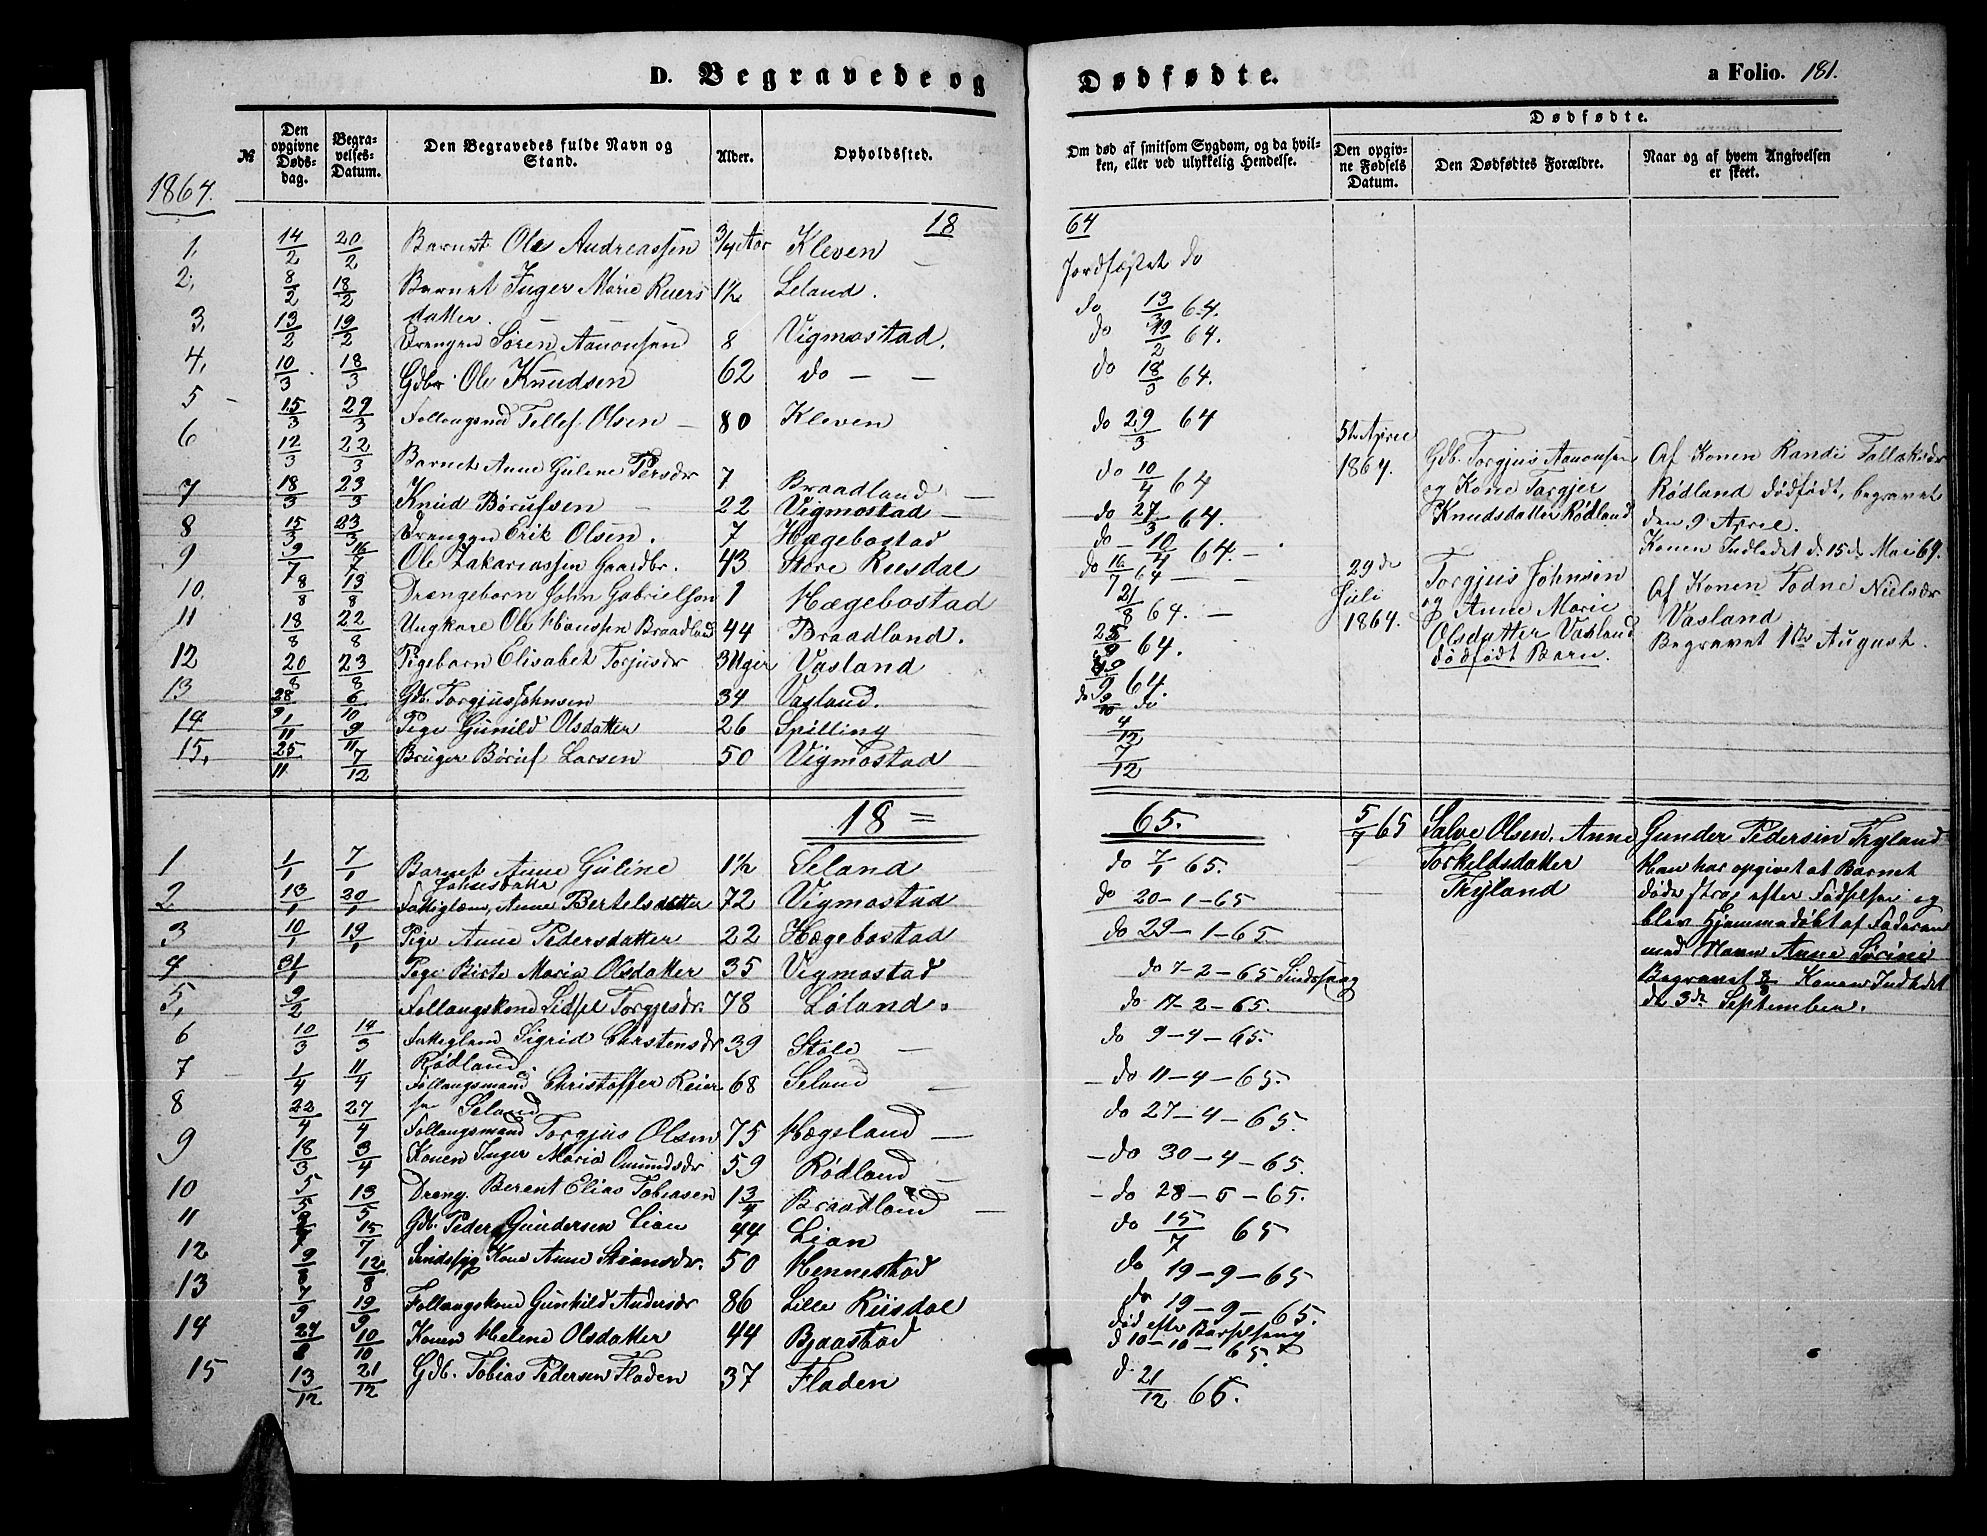 D. Begravede og Dødfødte.
a Folio. 181.
№ | Den opgivne Dødsdag. | Begravelses-Datum. | Den Begravedes fulde Navn og Stand. | Alder. | Opholdssted. | Om død af smitsom Sygdom, og da hvilken, eller ved ulykkelig Hendelse. | Dødfødte. | Den opgivne Fødsels Datum. | Den Dødfødtes Forældre. | Naar og af hvem Angivelsen er skeet.
1864.
18 64
1, 14/2 20/2 Barnet Ole Andreassen 3/4 Aar Kleven – Jordfæstet do
2, 8/2 18/2 Barnet Inger Marie Reiers 1½ Seland. do 13/3 64.
datter.
3, 13/2 19/2 Drengen Søren Aanonsen 8 Vigmostad. do 19/2 64.
4, 10/3 18/3 Gdbr. Ole Knudsen 62 do – – do 18/3 64.
5 – 15/3 29/3 Follaugsmd Tellef Olsen – 80 Kleven do 29/3 64
6 12/3 22/3 Barnet Anne Guline Persdr 7 Braadland – do 10/4 64
7 18/3 23/3 Knud Børufsen – 22 Vigmostad – do 27/3 64.
8 15/3 23/3 Drengen Erik Olsen. 7 Hægebostad do – 10/4 64. –
9 9/7 16/7 Ole Zakariassen Gaardbr. 43 Store Riisdal do 16/7 64 –
10. 8/8 13/8 Drengebarn John Gabrielsen 1 Hægebostad 21/8 64. –
11 18/8 22/8 Ungkare Ole Hanssen Braadland 44 Braadland. 64.
12 20/8 23/8 Pigebarn Elisabet Torjusdr 3 Uger Vasland 64.
13 28/9 6/10 Gdb. Torgjus Johnsen 34 Vasland. do 9/10 do
14 1/11 9/11 Pige Gunild Olsdatter 26 Spilling 4/12
15, 25/11 7/12 Bruger Børuf Larsen 50 Vigmostad 7/12
5te April 1864. Gdb. Torgjus Aanonsen
og Kone Torgjer
Knudsdatter Rødland
Af Konen Randi Tallaksdr
Rødland dødfødt, begravet
den 9 April.
Konen Indledet d. 15de Mai 69.
29de Juli 1864. Torgjus Johnsen
og Anne Marie
Olsdatter Vasland
dødfødt Barn.
Af Konen Todne Nielsdr
Vasland
Begravet 1ste August.
18 = 65.
1 1/1 7/1 Barnet Anne Guline 1½ Seland do 7/1 65.
Johnsdatter
2 13/1 20/1 Fattiglem, Anne Bertelsdatter 72 Vigmostad do 20–1–65
3 10/1 19/1 Pige Anne Pedersdatter 22 Hægebostad do 29–1–65.
4 31/1 Pige Birte Maria Olsdatter 35 Vigmostad do 7–2–65 Sindssyg
5, 9/2 Follaugskone Sidsel Torgjusdr. 78 Løland. do 17–2–65.
6 10/3 14/3 Fattiglem Sigrid Carstensdr 39 Støle – do 9–4–65.
Rødland.
7 – 1/4 11/4 Follaugsmand Christoffer Reier 68 Seland – – do 11–4–65.
sen Seland
8 22/4 27/4 Follaugsmand Torgjus Olsen 75 Hægeland – do 27–4–65.
9 18/3 3/4 Konen Inger Maria Omundsdr 59 Rødland – – do 30–4–65.
10 5/5 13/5 Dreng. Berent Elias Tobiasen 1 3/4 Braadland – – do 28–5–65.
11 15/7 Gdb. Peder Gundersen Lian 44 Lian do 15/7 65
12 9/8 12/8 Sindssyg Kone Anne Stiansdr. 50 Hennestad do 19–9–65
13 7/9 19/9 Follaugskone Gunhild Andersdr 86 Lille Riisdal do 19–9–65.
14 10/10 Konen Helene Olsdatter 44 Bjaastad død efter Barselseng
d 10–10–65.
15 13/12 21/12 Gdb. Tobias Pedersen Fladen 37 Fladen d. 21/12 65.
5/7 65 Salve Olsen, Anne
Torkeldsdatter
Tryland
Gunder Pedersen Tryland
Han har opgivet at Barnet
døde strax efter Fødselen og
blev Hjemmedøbt af Faderen
med Navn Anne Sørine
Begravet Konen Indledet
de 3de September.